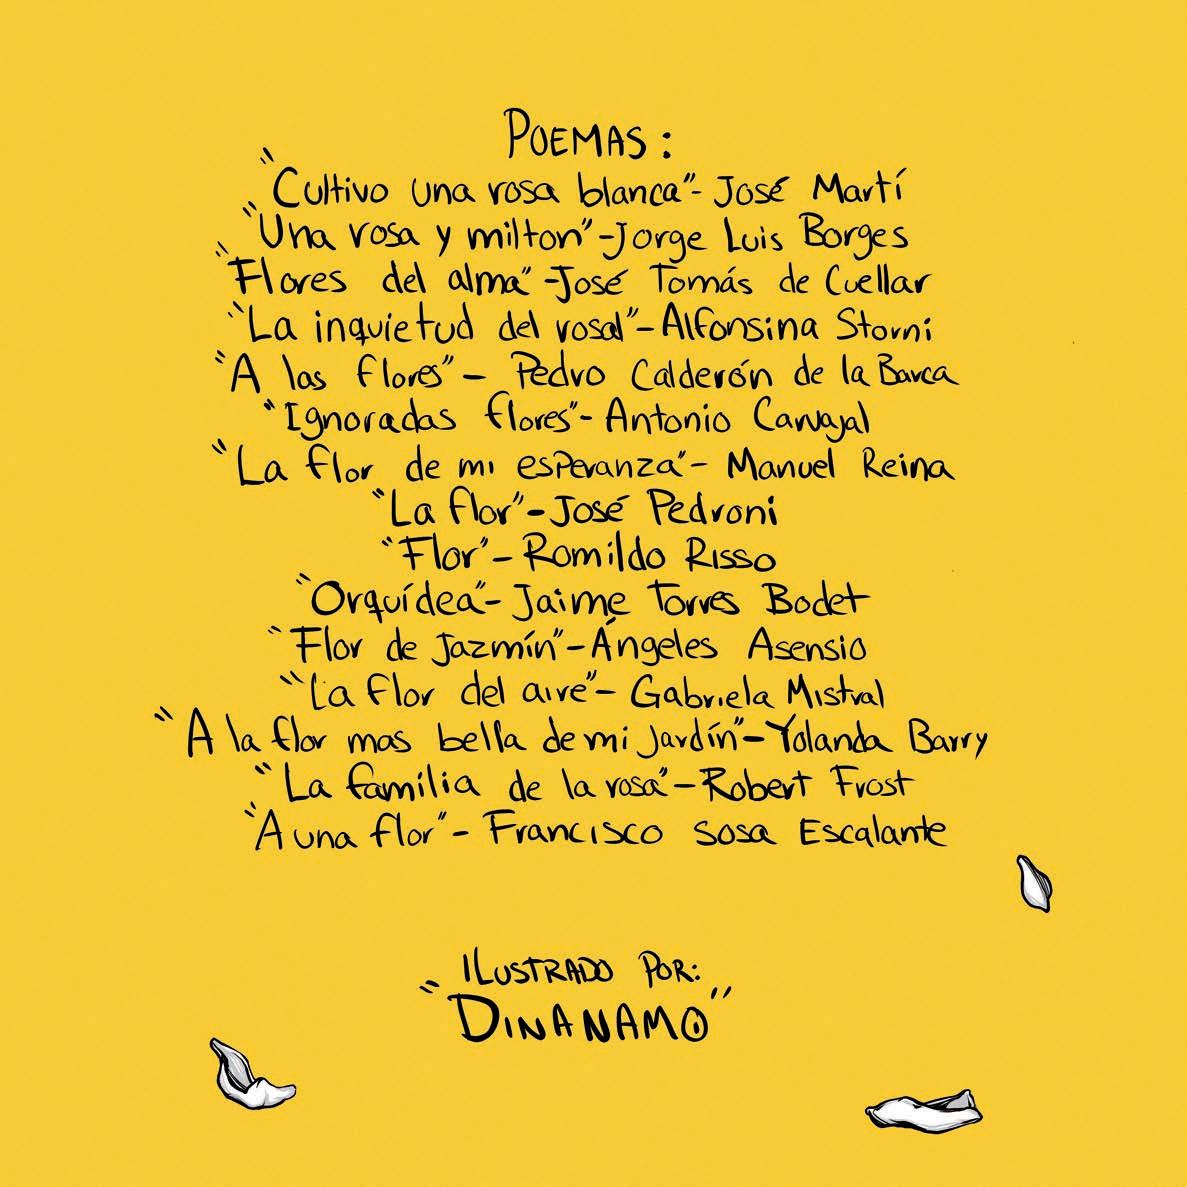 POEMAS:
"Cultivo una rosa blanca"- José Martí
"Una rosa y milton"-Jorge Luis Borges
"Flores del alma"-José Tomás de Cuellar
"La inquietud del rosal"-Alfonsina Storni
"A las flores"- Pedro Calderón de la Barca
"Ignoradas flores"- Antonio Carvajal
"La flor de mi esperanza"- Manuel Reina
"La flor"-José Pedroni
"Flor"-Romildo Risso
"Orquídea"-Jaime Torres Bodet
"Flor de Jazmín"-Ángeles Asensio
"La flor del aire"- Gabriela Mistral
"A la flor mas bella de mi jardín"-Yolanda Barry
"La familia de la rosa"-Robert Frost
"A una flor"- Francisco Sosa Escalante
ILUSTRADO POR:
"DINANAMO"